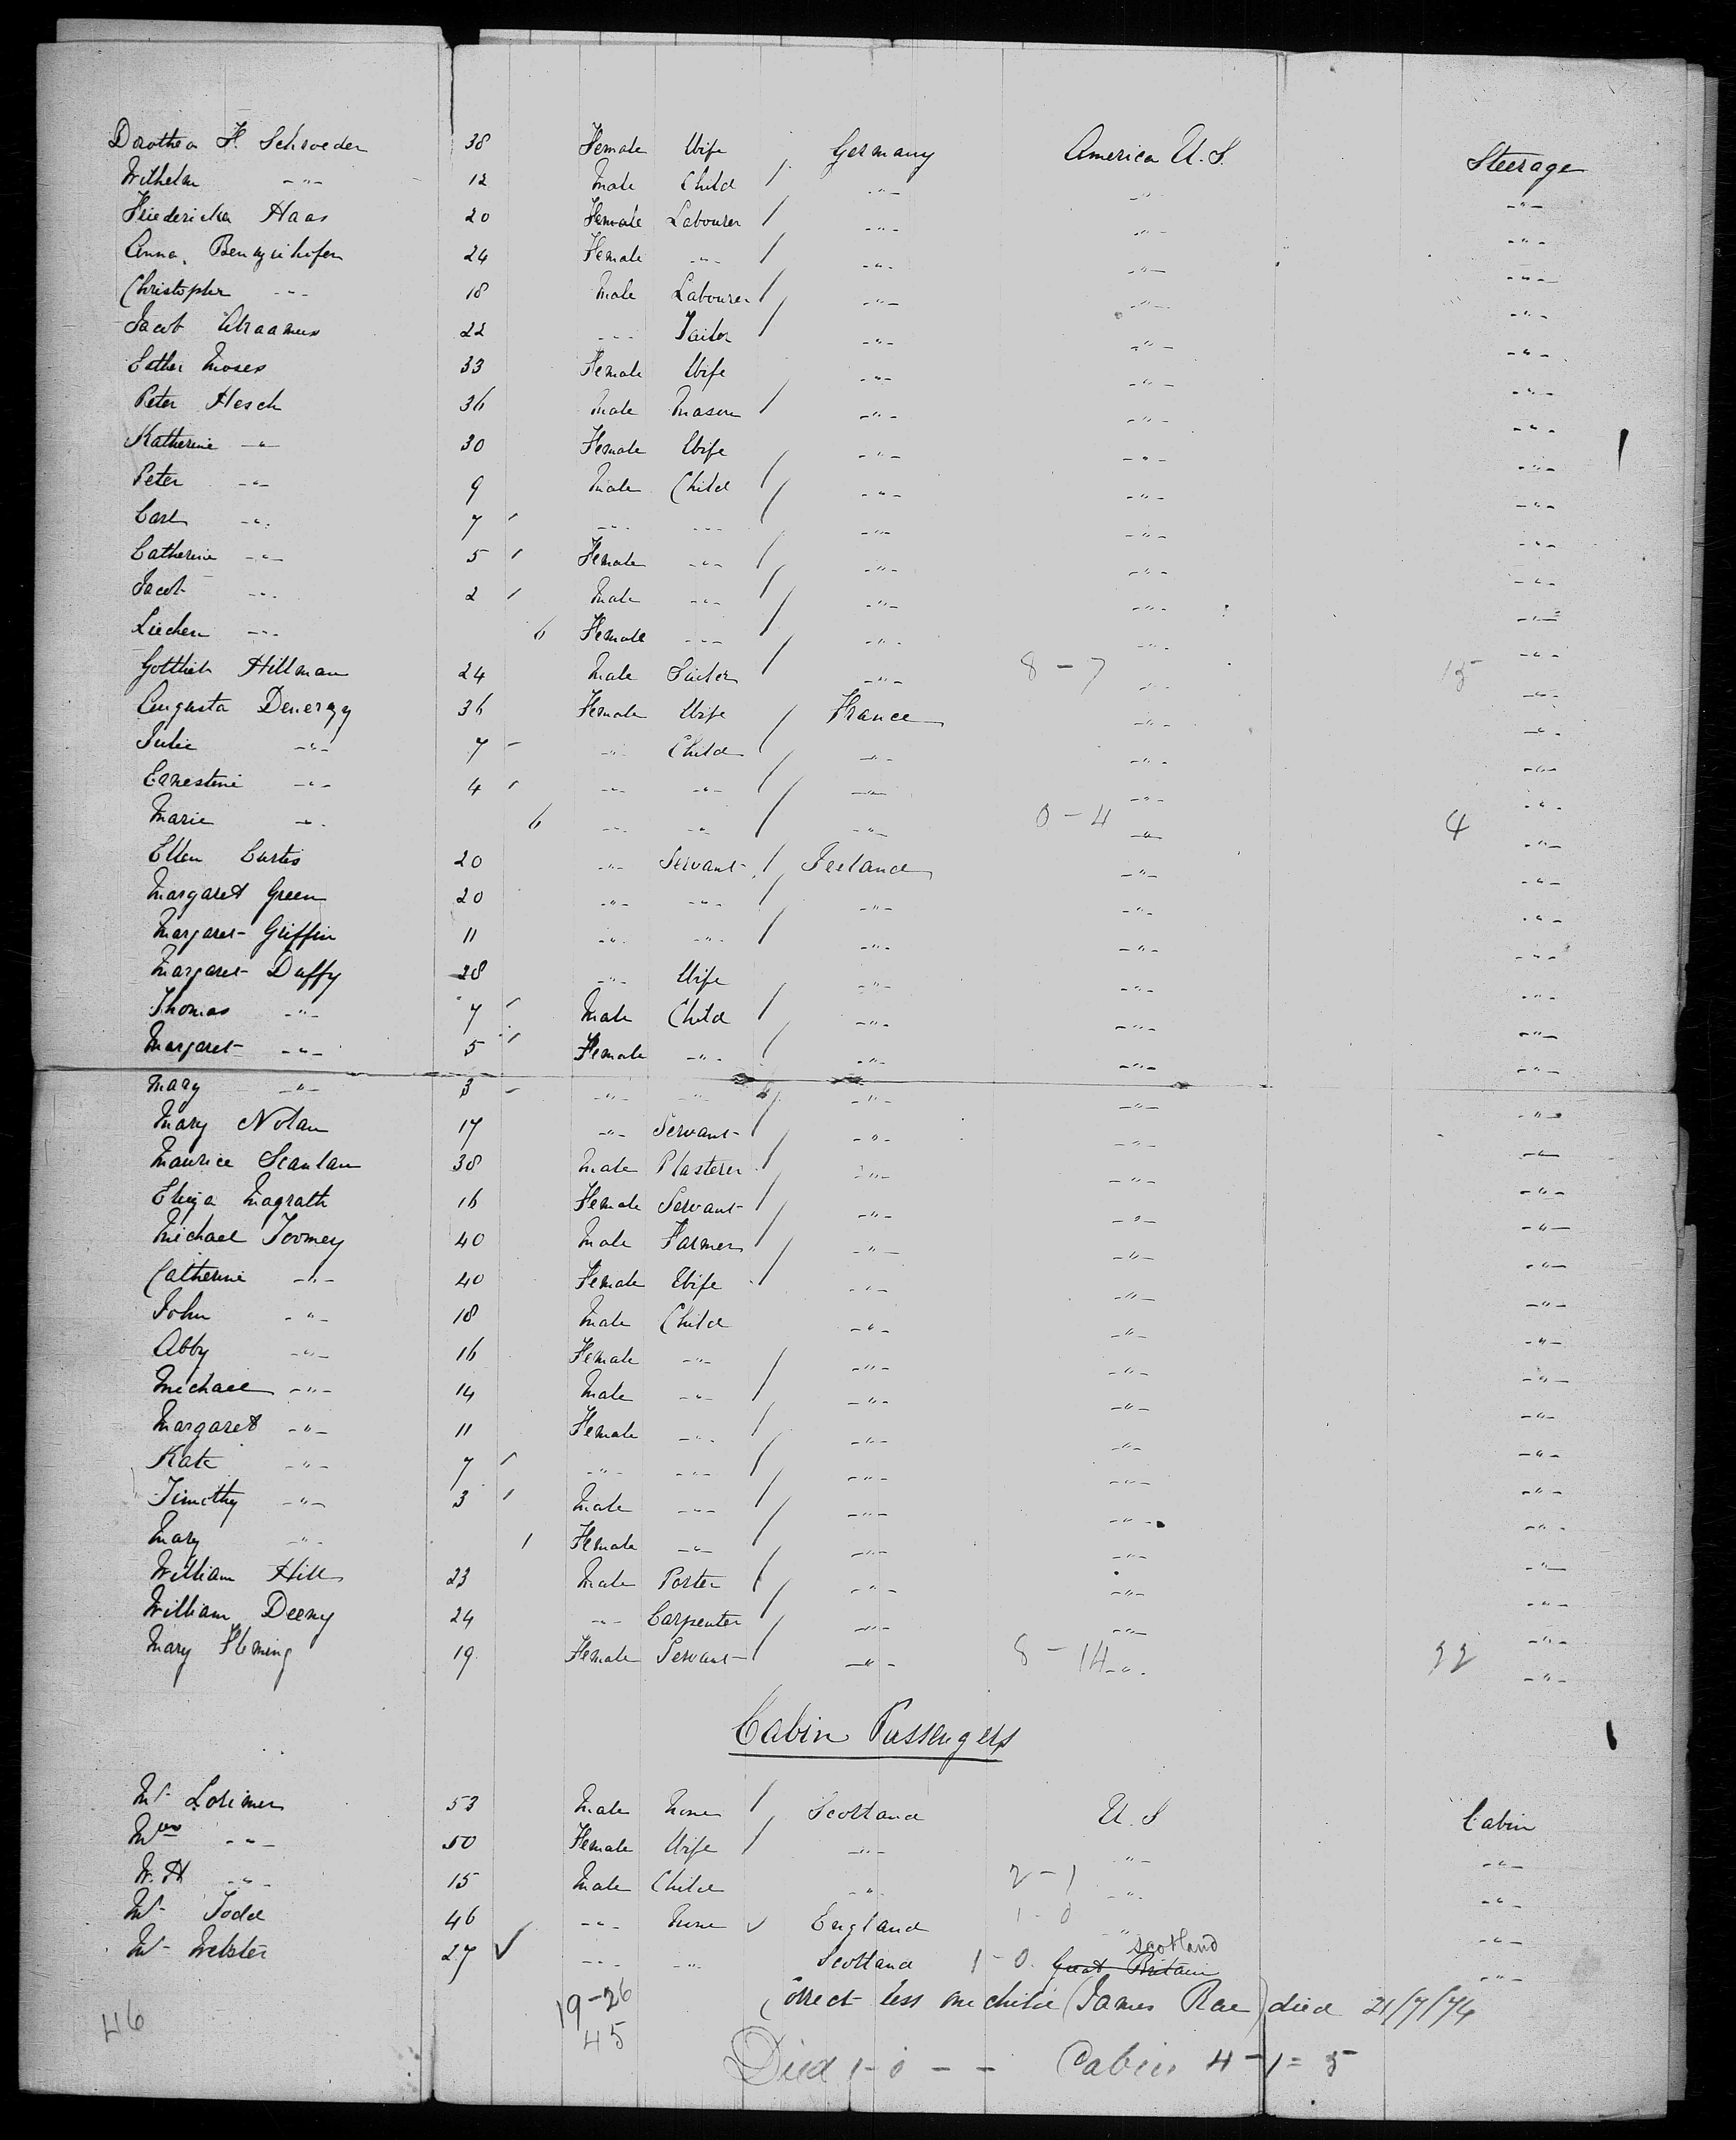 Dorothea F. Schroeder 38 Female Wife Germany America U.S. Steerage
Wilhelm -"- 12 Male Child / -"- -"- -"-
Friedericka Haas 20 Female Labourer / -"- -"- -"-
Anna 24 Female -"- / -"- -"- -"-
Christopher -"- 18 Male Labourer / -"- -"- -"-
Jacob 22 -"- Tailor / -"- -"- -"-
Esther Moses 33 Female Wife -"- -"- -"-
Peter Hesch 36 Male Mason / -"- -"- -"-
Katherine -"- 30 Female Wife -"- -"- -"-
Peter -"- 9 Male Child / -"- -"- -"-
Carl -"- 7 -"- -"- / -"- -"- -"-
Catherine -"- 5 Female -"- / -"- -"- -"-
Jacob -"- 2 Male -"- / -"- -"- -"-
Liechen -"- 6 Female -"- / -"- -"- -"-
Gottlieb Hillman 24 Male / -"- 8-7 -"- 15 -"-
Augusta 36 Female Wife / France -"- -"-
Julie -"- 7 -"- Child / -"- -"- -"-
Earnestine -"- 4 -"- -"- / -"- -"- -"-
Marie -"- 6 -"- -"- / -"- 0-4 -"- 4 -"-
Ellen Curtis 20 -"- Servant / Ireland -"- -"-
Margaret Green 20 -"- -"- / -"- -"- -"-
Margaret Griffin 11 -"- -"- / -"- -"- -"-
Margaret Duffy 28 -"- Wife -"- -"- -"-
Thomas -"- 7 Male Child / -"- -"- -"-
Margaret -"- 5 Female -"- / -"- -"- -"-
Mary -"- 3 -"- -"- / -"- -"- -"-
Mary Nolan 17 -"- Servant / -"- -"- -"-
Maurice Scanlan 38 Male Plasterer / -"- -"- -"-
Eliza Magrath 16 Female Servant / -"- -"- -"-
Michael Toomey 40 Male Farmer / -"- -"- -"-
Catherine -"- 40 Female Wife / -"- -"- -"-
John -"- 18 Male Child -"- -"- -"-
Abby -"- 16 Female -"- / -"- -"- -"-
Michael -"- 14 Male -"- / -"- -"- -"-
Margaret -"- 11 Female -"- / -"- -"- -"-
Kate -"- 7 -"- -"- / -"- -"- -"-
Timothy -"- 3 Male -"- / -"- -"- -"-
Mary -"- 1 Female -"- / -"- -"- -"-
William Hill 23 Male Porter / -"- -"- -"-
William Deeny 24 -"- Carpenter / -"- -"- -"-
Mary Fleming 19 Female Servant / -"- 8-14 -"- 22 -"-
Cabin Passengers
Mr Lorimer 53 Male None / Scotland U.S Cabin
Mrs -"- 50 Female Wife / -"- -"- -"-
W.H -"- 15 Male Child -"- 2-1 -"- -"-
Mr Todd 46 -"- None ✓ England 1-0 -"- -"-
Mr Webster 27 ✓ -"- -"- Scotland 1-0 Great Britain Scotland -"-
19-26 Correct less one child (James Rae) died 21/7/74
46 45
Died 1-0 -- Cabin 4-1=5